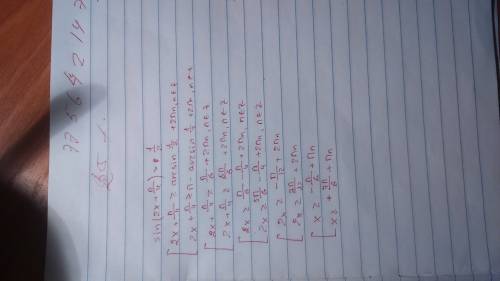 sin(2x + π/4) ≥ 1/2
[ 2x + π/4 ≥ arcsin 1/2 + 2πn, n∈z
2x + π/4 ≥ π - arcsin 1/2 + 2πn, n∈z
[ 2x + π/4 ≥ π/6 + 2πn, n∈z
2x + π/4 ≥ 5π/6 + 2πn, n∈z
[ 2x ≥ π/6 - π/4 + 2πn, n∈z
2x ≥ 5π/6 - π/4 + 2πn, n∈z
[ 2x ≥ - π/12 + 2πn
2x ≥ + 2πn
[ x ≥ - π/6 + πn
x ≥ + + πn